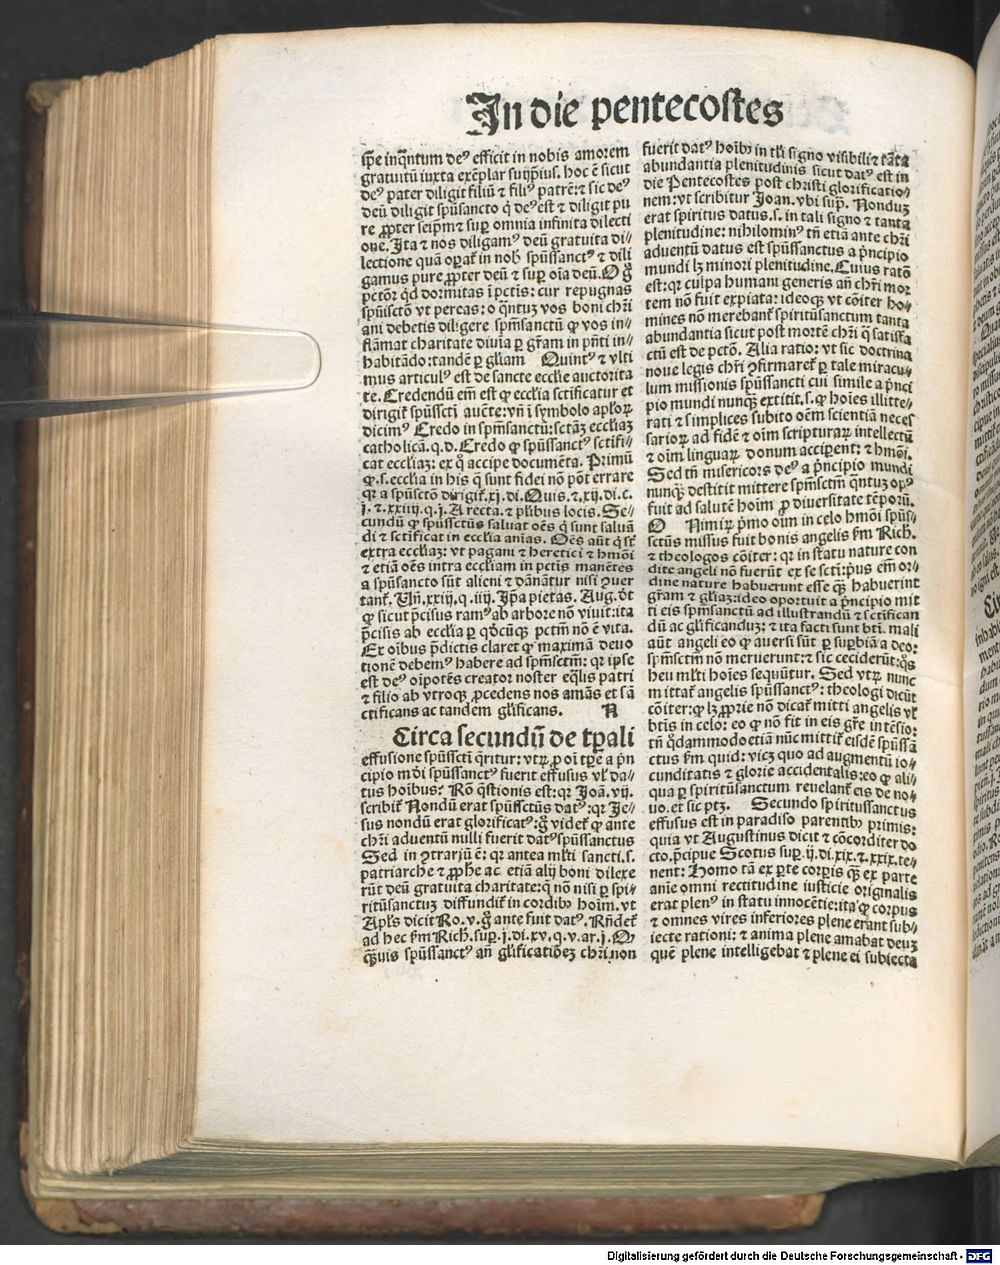 In die pentecostes
sꝑe inqͣntum deꝰ efficit in nobis amorem
gratuitū iuxta exēplar suijpsius. hoc ē sicut
deꝰ pater diligit filiū ⁊ filiꝰ patrē: ⁊ sic deꝰ
deū diligit spūsancto q̇ deꝰ est ⁊ diligit pu
re ꝓpter seip̄m ⁊ sup̱ omnia infinita dilecti
one. Ita ⁊ nos diligamꝰ deū gratuita di⸗
lectione quā oꝑat̄ in nob̄ spūssanctꝰ ⁊ dili
gamus pure ꝓpter deū ⁊ sup̱ oīa deū. O g̊
pctōr q̇d dormitas ī pctīs: cur repugnas
spūiscto vt pereas: o qͣntuꝫ vos boni chr̄i
ani debetis diligere spm̄sanctū ꝙ vos in⸗
flāmat charitate diuīa ꝑ gr̄am in pn̄ti in⸗
habitādo: tandē ꝑ gl̄iam Quintꝰ ⁊ vlti
mus articulꝰ est de sancte eccl̄ie auctorita
te. Credendū em̄ est ꝙ eccl̄ia sctificatur et
dirigit̄ spūsscti auc̄te: vn̄ ī symbolo apl̄oꝝ
dicimꝰ Credo in spm̄sanctū: sctāꝫ eccl̄iaꝫ
catholicā. q. d. Credo ꝙ spūssanctꝰ sctifi⸗
cat eccl̄iaꝫ: ex q̊ accipe documēta. Primū
ꝙ. s. eccl̄ia in his q̄ sunt fidei nō pōt errare
qꝛ a spūsctō dirigit̄. xj. di. Quis. ⁊. xij. di. c.
j. ⁊. xxiiij. q. j. A recta. ⁊ pl̄ibus locis. Se⸗
cundū ꝙ spūssctūs saluat oēs q̇ sunt saluā
di ⁊ sctificat in eccl̄ia aīas. Oēs aūt q̇ st̄
extra eccl̄iaꝫ: vt pagani ⁊ heretici ⁊ hmōi
⁊ etiā oēs intra eccl̄iam in pctīs manētes
a spūsancto sūt alieni ⁊ dānātur nisi ꝯuer
tant̄. Vn̄. xxiij. q. iiij. Ip̄a pietas. Aug. dt̄
ꝙ sicut p̄cisus ramꝰ ab arbore nō viuit: ita
p̄cisis ab eccl̄ia ꝑ qd̄cūqꝫ pctm̄ nō ē vita.
Ex oībus p̄dictis claret ꝙ maximā deuo
tionē debemꝰ habere ad spm̄sctm̄: qꝛ ipse
est deꝰ oīpotēs creator noster eq̄lis patri
⁊ filio ab vtroqꝫ ꝓcedens nos amās et sā
ctificans ac tandem gl̄ificans. N
Circa secundū de tꝑali
effusione spūssctī q̄ritur: vtꝝ ꝓ oī tꝑe a pn̄
cipio mōi spūssanctꝰ fuerit effusus vl̓ da⸗
tus hoībus: Rō q̄stionis est: qꝛ Joā. vij.
scribit̄ Nondū erat spūssctūs datꝰ: qꝛ Je⸗
sus nondū erat glorificatꝰ: g̊ videt̄ ꝙ ante
chr̄i aduentū nulli fuerit datꝰ spūssanctus
Sed in ꝯtrariū ē: qꝛ antea ml̄ti sancti. s.
patriarche ⁊ ꝓph̄e ac etiā alij boni dilexe
rūt deū gratuita charitate: q̄ nō nisi ꝑ spi⸗
ritūsanctuꝫ diffundit̄ in cordibꝰ hoīm. vt
Apl̄s dicit Ro. v. g̊ ante fuit datꝰ. Rn̄det̄
ad hec ẜm Rich. sup̱. j. di. xv. q. v. ar. j. Q⸗
qͣuis spūssanctꝰ an̄ gl̄ificatiōeꝫ chr̄i. non
fuerit datꝰ hoībꝰ in tl̄i signo visibili ⁊ tāta
abundantia plenitudinis sicut datꝰ est in
die Pentecostes post christi glorificatio⸗
nem: vt scribitur Joan. vbi sup̱. Nonduꝫ
erat spiritus datus. s. in tali signo ⁊ tanta
plenitudine: nihilominꝰ tn̄ etiā ante chr̄i
aduentū datus est spūssanctus a p̄ncipio
mundi lꝫ minori plenitudine. Cuius ratō
est: qꝛ culpa humani generis an̄ chr̄i mor
tem nō fuit expiata: ideoqꝫ vt cōiter ho⸗
mines nō merebant̄ spiritūsanctum tanta
abundantia sicut post mortē chr̄i q̄ satisfa
ctū est de pctō. Alia ratio: vt sic doctrina
noue legis chr̄i ꝯfirmaret̄ ꝑ tale miracu⸗
lum missionis spūssancti cui simile a p̄nci
pio mundi nunqͣꝫ extitit. s. ꝙ hoīes illitte⸗
rati ⁊ simplices subito oēm scientiā neces
sarioꝝ ad fidē ⁊ oīm scripturaꝝ intellectū
⁊ oīm linguaꝝ donum acciperent: ⁊ hmōi.
Sed tn̄ misericors deꝰ a p̄ncipio mundi
nunqͣꝫ destitit mittere spm̄sctm̄ qͣntuꝫ opꝰ
fuit ad salutē hoīm ꝓ diuersitate tēporū.
O Nam p̄mo oīm in celo hmōi spūs⸗
sctūs missus fuit bonis angelis ẜm Rich.
⁊ theologos cōiter: qꝛ in statu nature con
dite angeli nō fuerūt ex se scti: pus em̄ or⸗
dine nature habuerunt esse qͣꝫ habuerint
gr̄am ⁊ gl̄iaꝫ: ideo oportuit a p̄ncipio mit
ti eis spm̄sanctū ad illustrandū ⁊ sctifican
dū ac gl̄ificanduꝫ: ⁊ ita facti sunt bti. mali
aūt angeli eo ꝙ auersi sūt ꝑ suꝑbiā a deo:
spm̄sctm̄ nō meruerunt: ⁊ sic ceciderūt: q̊s
heu ml̄ti hoīes sequūtur. Sed vtꝝ nunc
mittat̄ angelis spūssanctꝰ: theologi dicūt
cōiter: ꝙ lꝫ ꝓprie nō dicat̄ mitti angelis vl̓
btīs in celo: eo ꝙ nō fit in eis gr̄e intēsio:
tn̄ q̇dammodo etiā nūc mittit̄ eisdē spūssā
ctus ẜm quid: vicꝫ quo ad augmentū io⸗
cunditatis ⁊ glorie accidentalis: eo ꝙ ali⸗
qua ꝑ spiritūsanctum reuelant̄ eis de no⸗
uo. et sic ptꝫ. Secundo spiritussanctus
effusus est in paradiso parentibꝰ primis:
quia vt Augustinus dicit ⁊ cōcorditer do
cto. p̄cipue Scotus sup̱. ij. di. xix. ⁊. xxix. te⸗
nent: Homo tā ex ꝑte corꝑis qͣꝫ ex parte
anīe omni rectitudine iusticie originalis
erat plenꝰ in statu innocētie: ita ꝙ corpus
⁊ omnes vires inferiores plene erant sub⸗
iecte rationi: ⁊ anima plene amabat deuꝫ
quē plene intelligebat ⁊ plene ei subiecta
Digitalisierung gefördert durch die Deutsche Forschungsgemeinschaft - DFG